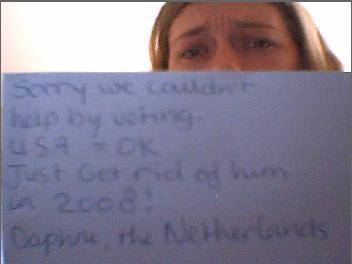 Sorry we couldn't
help by voting.
USA = OK
Just Get rid of him
in 2008!
Daphne, the Netherlands